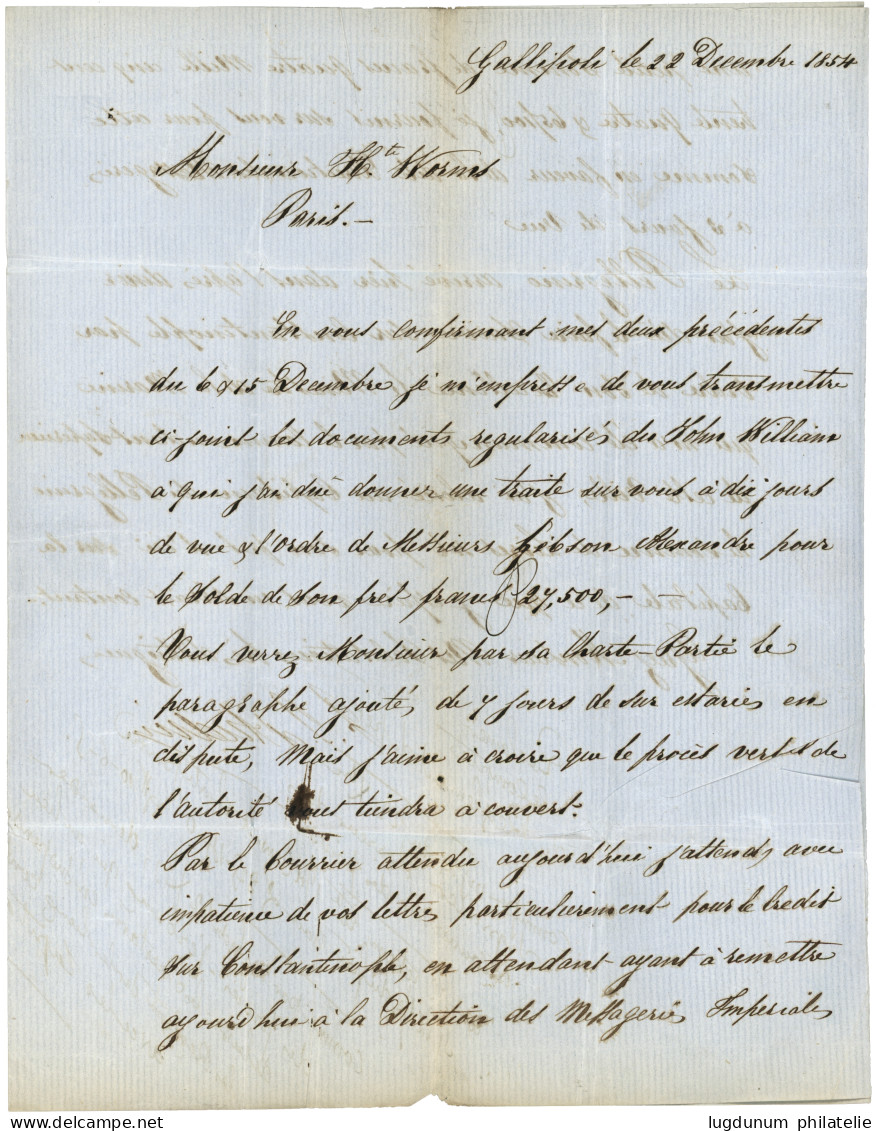 Gallipoli le 22 Decembre 1854
Monsieur Hte Worms
Paris. –
En vous confirmant mes deux précédentes
du 6 & 15 Decembre je m'empresse de vous transmettre
ci-joint les documents regularisés du John William
a qui j'ai dué donner une traite sur vous à dix jours
de vue & l'ordre de Messieurs Gibson Alexandre pour
le Solde de Son fret francs 27,500, – –
Vous verrez Monsieur par sa Charte-Partie le
paragraphe ajouté, de 7 jours de sur estaries en
dispute, Mais j'aime à croire que le procès verbal de
l'autorité vous tiendra à couvert.
Par le Courrier attendu aujourd'hui j'attends avec
impatience de vos lettres particulierement pour le Credit
Sur Constantinople, en attendant ayant à remettre
aujourd'hui à la Direction des Messageries Imperiales
lugdunum philatelie